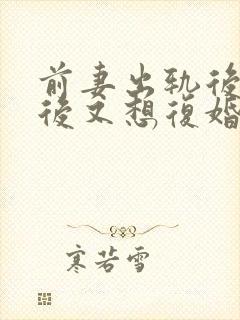 前妻出軌後
後又想復婚
寒若雪